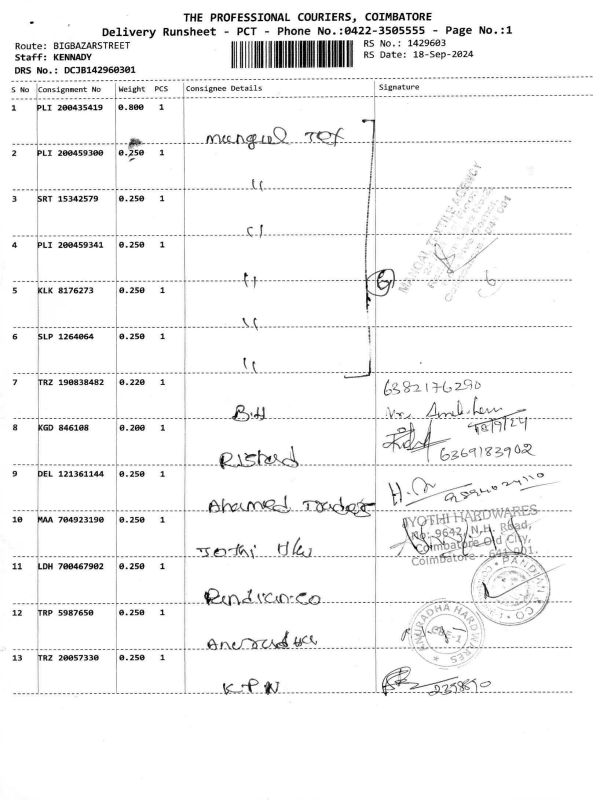 THE PROFESSIONAL COURIERS, COIMBATORE
Delivery Runsheet - PCT - Phone No.:0422-3505555 - Page No.:1
Route: BIGBAZARSTREET
RS No.: 1429603
Staff: KENNADY
RS Date: 18-Sep-2024
DRS No.: DCJB142960301
S No Consignment No Weight PCS Consignee Details Signature
1 PLI 200435419 0.800 1
Mangal Tex
2 PLI 200459300 0.250 1
"
3 SRT 15342579 0.250 1
"
MANGAL TEXTILE AGENCY
4 PLI 200459341 0.250 1
"
6
6
5 KLK 8176273 0.250 1
"
6 SLP 1264064 0.250 1
"
7 TRZ 190838482 0.220 1
6382176290
8 KGD 846108 0.200 1
18/9/24
6369183902
9 DEL 121361144 0.250 1
Ahamed Traders
10 MAA 704923190 0.250 1
JYOTHI HARDWARES
No: 9642, N.H. Road,
Coimbatore Old City,
Coimbatore - 641 001.
Jothi
11 LDH 700467902 0.250 1
Pandian.co
PANDIAN & CO
12 TRP 5987650 0.250 1
ANURADHA HARDWARES
13 TRZ 20057330 0.250 1
K.P.N